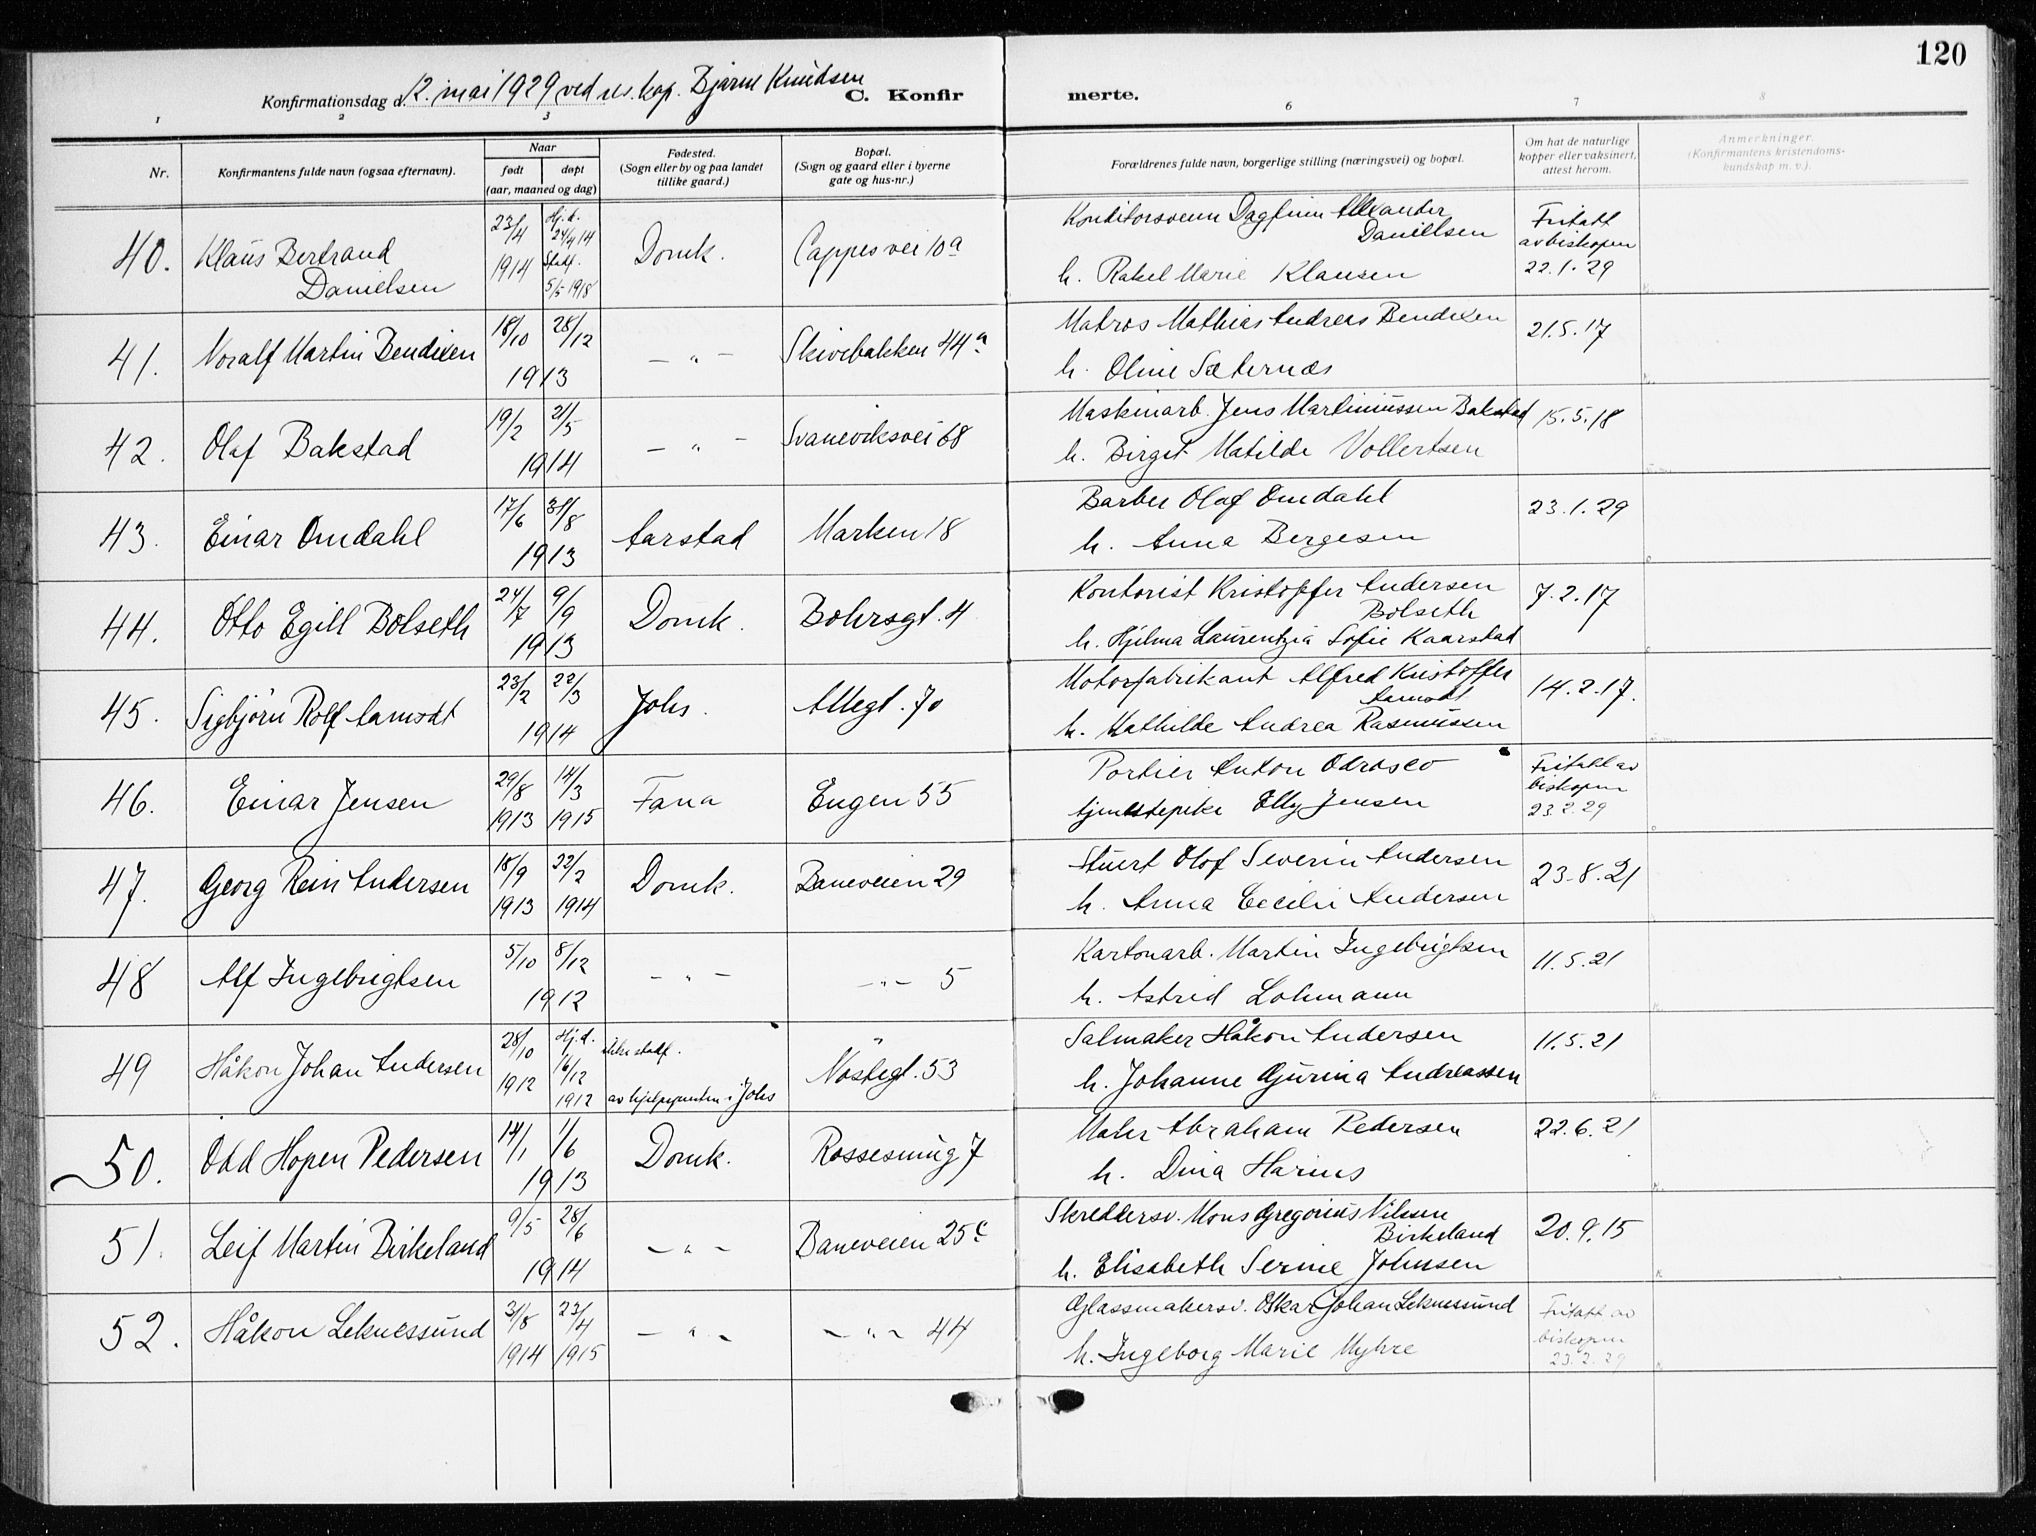 120
Konfirmationsdag d. 12. mai 1929 ved res. kap. Bjarne Knudsen
C. Konfirmerte.
1 2 3 6 7 8
Nr. Konfirmantens fulde navn (ogsaa efternavn). Naar født døpt (aar, maaned og dag) Fødested. (Sogn eller by og paa landet tillike gaard.) Bopæl. (Sogn og gaard eller i byerne gate og hus-nr.) Forældrenes fulde navn, borgerlige stilling (næringsvei) og bopæl. Om hat de naturlige kopper eller vaksinert, attest herom. Anmerkninger. (Konfirmantens kristendoms-kundskap m. v.).
40. Klaus Bertrand Danielsen 23/4 1914 Hj.d. 24/4 14 Stadf. 5/5 1918 Domk. Cappesvei 10a Konditorsvenn Dagfinn Alexander Daniellsen
h. Rakel Marie Klausen Fritatt av biskopen 22.1.29
41. Noralf Martin Bendixen 18/10 28/12 1913 — " — Skivebakken 44a Matros Mathias Andreas Bendixen
h. Oline Sæternæs 21.5.17
42. Olaf Bakstad 19/2 21/5 1914 — " — Svaneviksvei 68 Maskinarb. Jens Martinussen Bakstad
h. Birgit Matilde Vollertsen 15.5.18
43. Einar Omdahl 17/6 31/8 1913 Aarstad Marken 18 Barber Olaf Omdahl
h. Anna Bergesen 23.1.29
44. Otto Egill Bolseth 24/7 9/9 1913 Domk. Bohrsgt. 4 Kontorist Kristoffer Andersen Bolseth
h. Hjelma Laurentzia Sofie Kaarstad 7.2.17
45. Sigbjörn Rolf Aamodt 23/2 22/3 1914 Johs. Allegt. 70 Motorfabrikant Alfred Kristoffer Aamodt
h. Mathilde Andrea Rasmussen 14.2.17.
46. Einar Jensen 29/8 1913 14/3 1915 Fana Engen 55 Portier Anton Odrasco
tjenestepike Elly Jensen Fritatt av biskopen 23.2.29
47. Georg Rein Andersen 18/9 1913 22/2 1914 Domk. Baneveien 29 Stuert Olof Severin Andersen
h. Anna Cecilie Andersen 23.8.21
48 Alf Ingebrigtsen 5/10 8/12 1912 — " — — " — 5 Kartonarb. Martin Ingebrigtsen
h. Astrid Lohmann 11.5.21
49 Håkon Johan Andersen 28/10 1912 Hj.d. 16/12 1912 ikke stadf. av hjelpepresten i Johs Nöstegt. 53 Salmaker Håkon Andersen
h. Johanne Gurina Andreassen 11.5.21
50. Odd Hopen Pedersen 14/1 1/6 1913 Domk. Rossesmug 7 Maler Abraham Pedersen
h. Dina Harius 22.6.21
51. Leif Martin Birkeland 9/5 28/6 1914 — " — Baneveien 25c Skreddersv. Mons Gregorius Nilsen Birkeland
h. Elisabeth Serine Johnsen 20.9.15
52. Håkon Leknessund 31/8 1914 23/4 1915 — " — — " — 44 Glassmakersv. Oskar Johan Leknessund
h. Ingeborg Marie Myhre Fritatt av biskopen 23.2.29